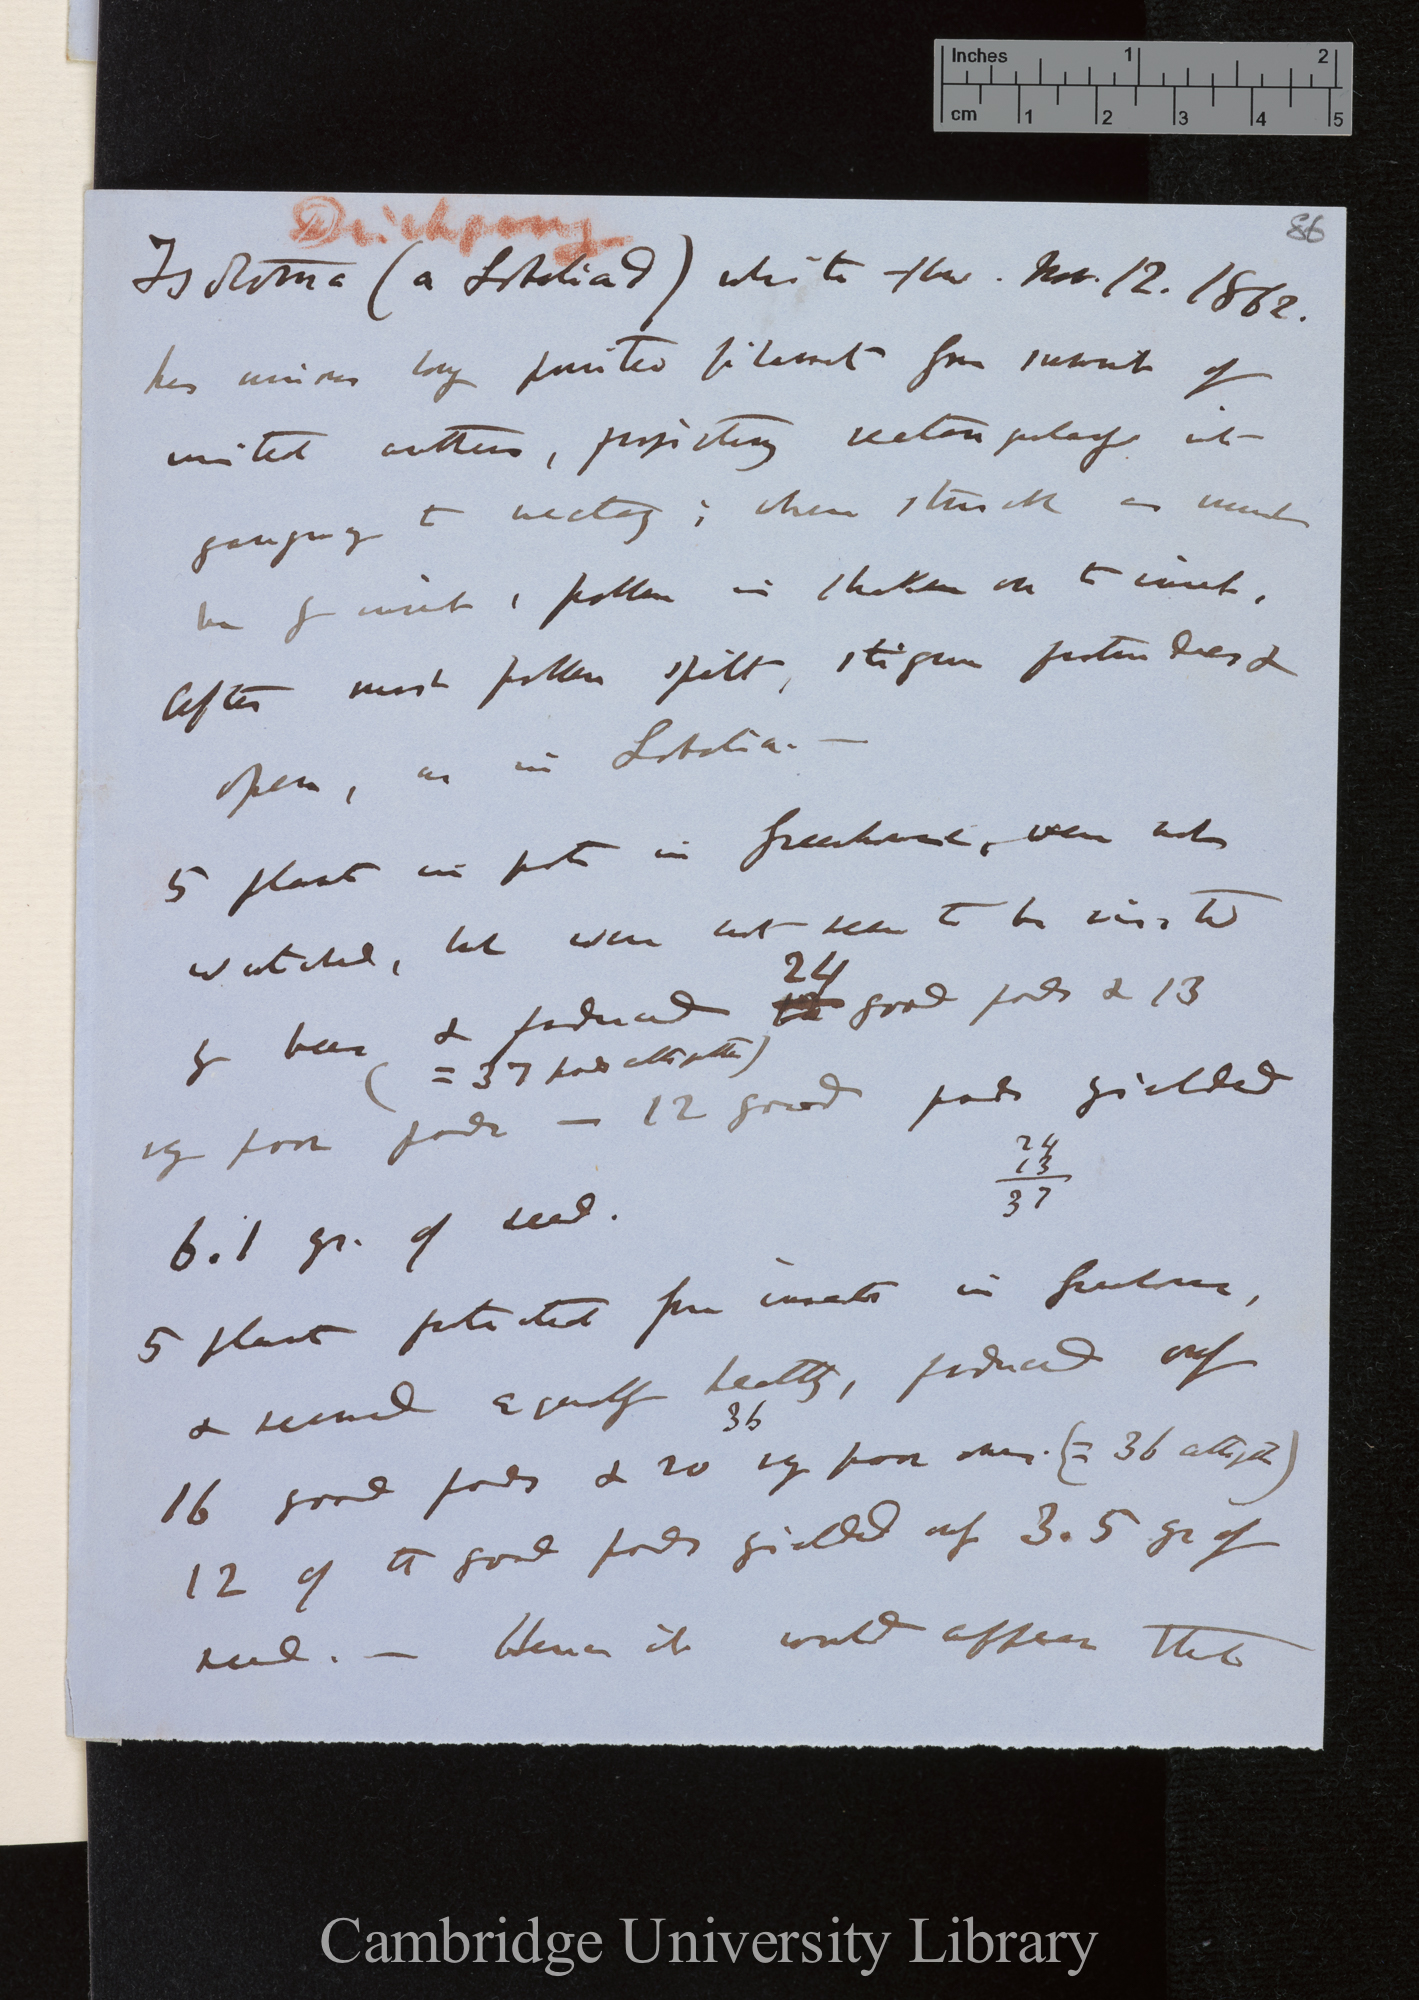 Inches 1 2
cm 1 2 3 4 5
86
Dichogamy
Isotoma (a Lobeliad) white flow. Nov. 12. 1862.
has minor long pointed filament from summit of
united anthers, projecting rectangularly into
gangway to nectary; when struck as must
be by insect, pollen is shaken on to insect,
After most pollen spilt, stigma protrudes &
open, as in Lobelia. —
5 plants in pots in Greenhouse, were not
watched, but were not seen to be visited
by bees & produced 24 good pods & 13
(= 37 pods altogether)
vy poor pods — 12 good pods yielded
24
13
37
6.1 gr. of seed.
5 plants protected from insects in Greenhouse,
& seemed equally healthy, produced only
36
16 good pods & 20 vy poor ones. (= 36 altogether)
12 of the good pods yielded only 3.5 gr of
seed. — Hence it would appear that
Cambridge University Library